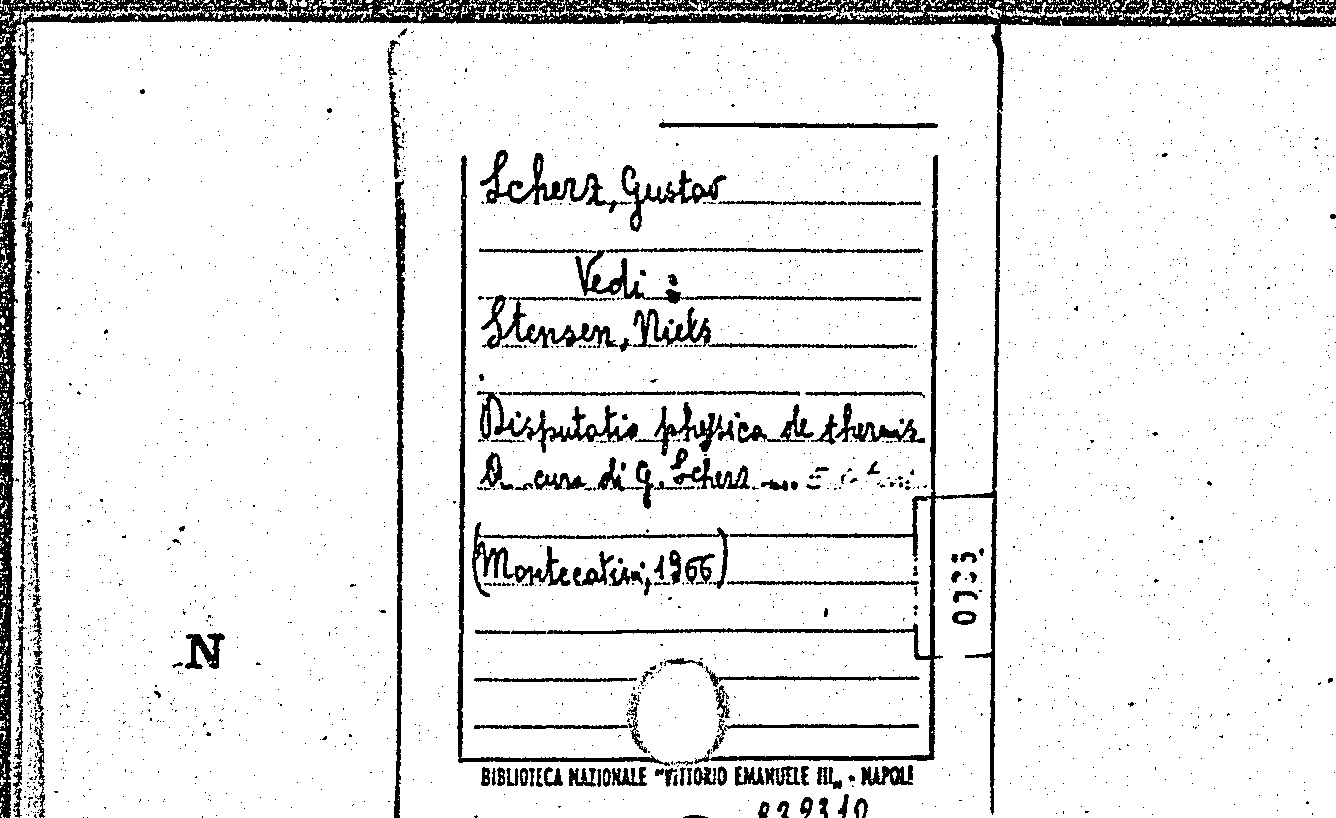 Scherz, Gustav
Vedi :
Stensen, Niels
Disputatio physica de thermis.
A cura di G. Scherz ...
(Montecatini, 1966)
N
BIBLIOTECA NAZIONALE "VITTORIO EMANUELE III„ - NAPOLI
839310